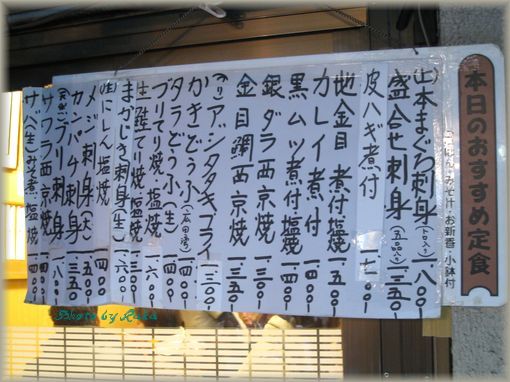 本日のおすすめ定食
ごはん・みそ汁・お新香・小鉢付
(生)本まぐろ刺身(トロ入り)一八〇〇
盛合せ刺身(五品入り)一三五〇
皮ハギ煮付
地金目煮付塩焼一五〇〇
カレイ煮付一四〇〇
黒ムツ煮付塩焼一五〇〇
銀ダラ西京焼一四〇〇
金目鯛西京焼一三五〇
アジタタキフライ一二〇〇
かきどうふ一三〇〇
タラどうふ(生)一四〇〇
ブリてり焼・塩焼一四〇〇
生鮭てり焼・塩焼一六〇〇
まかじき刺身(生)一三〇〇
(生)にしん塩焼一六〇〇
メジ刺身(大)一四〇〇
カンパチ刺身一五〇〇
ブリ刺身一三五〇
サワラ西京焼一八〇〇
サバ(生)みそ煮・塩焼一四〇〇
Photo by Rika